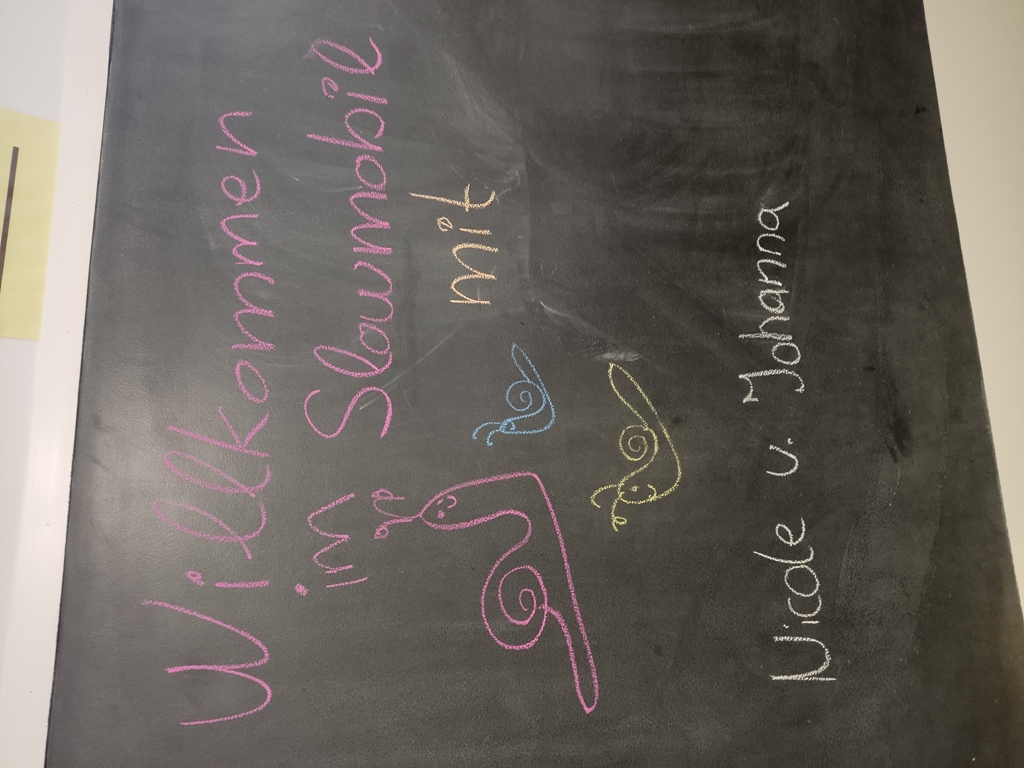 Willkommen
im Slowmobil
mit
Nicole v. Johanna